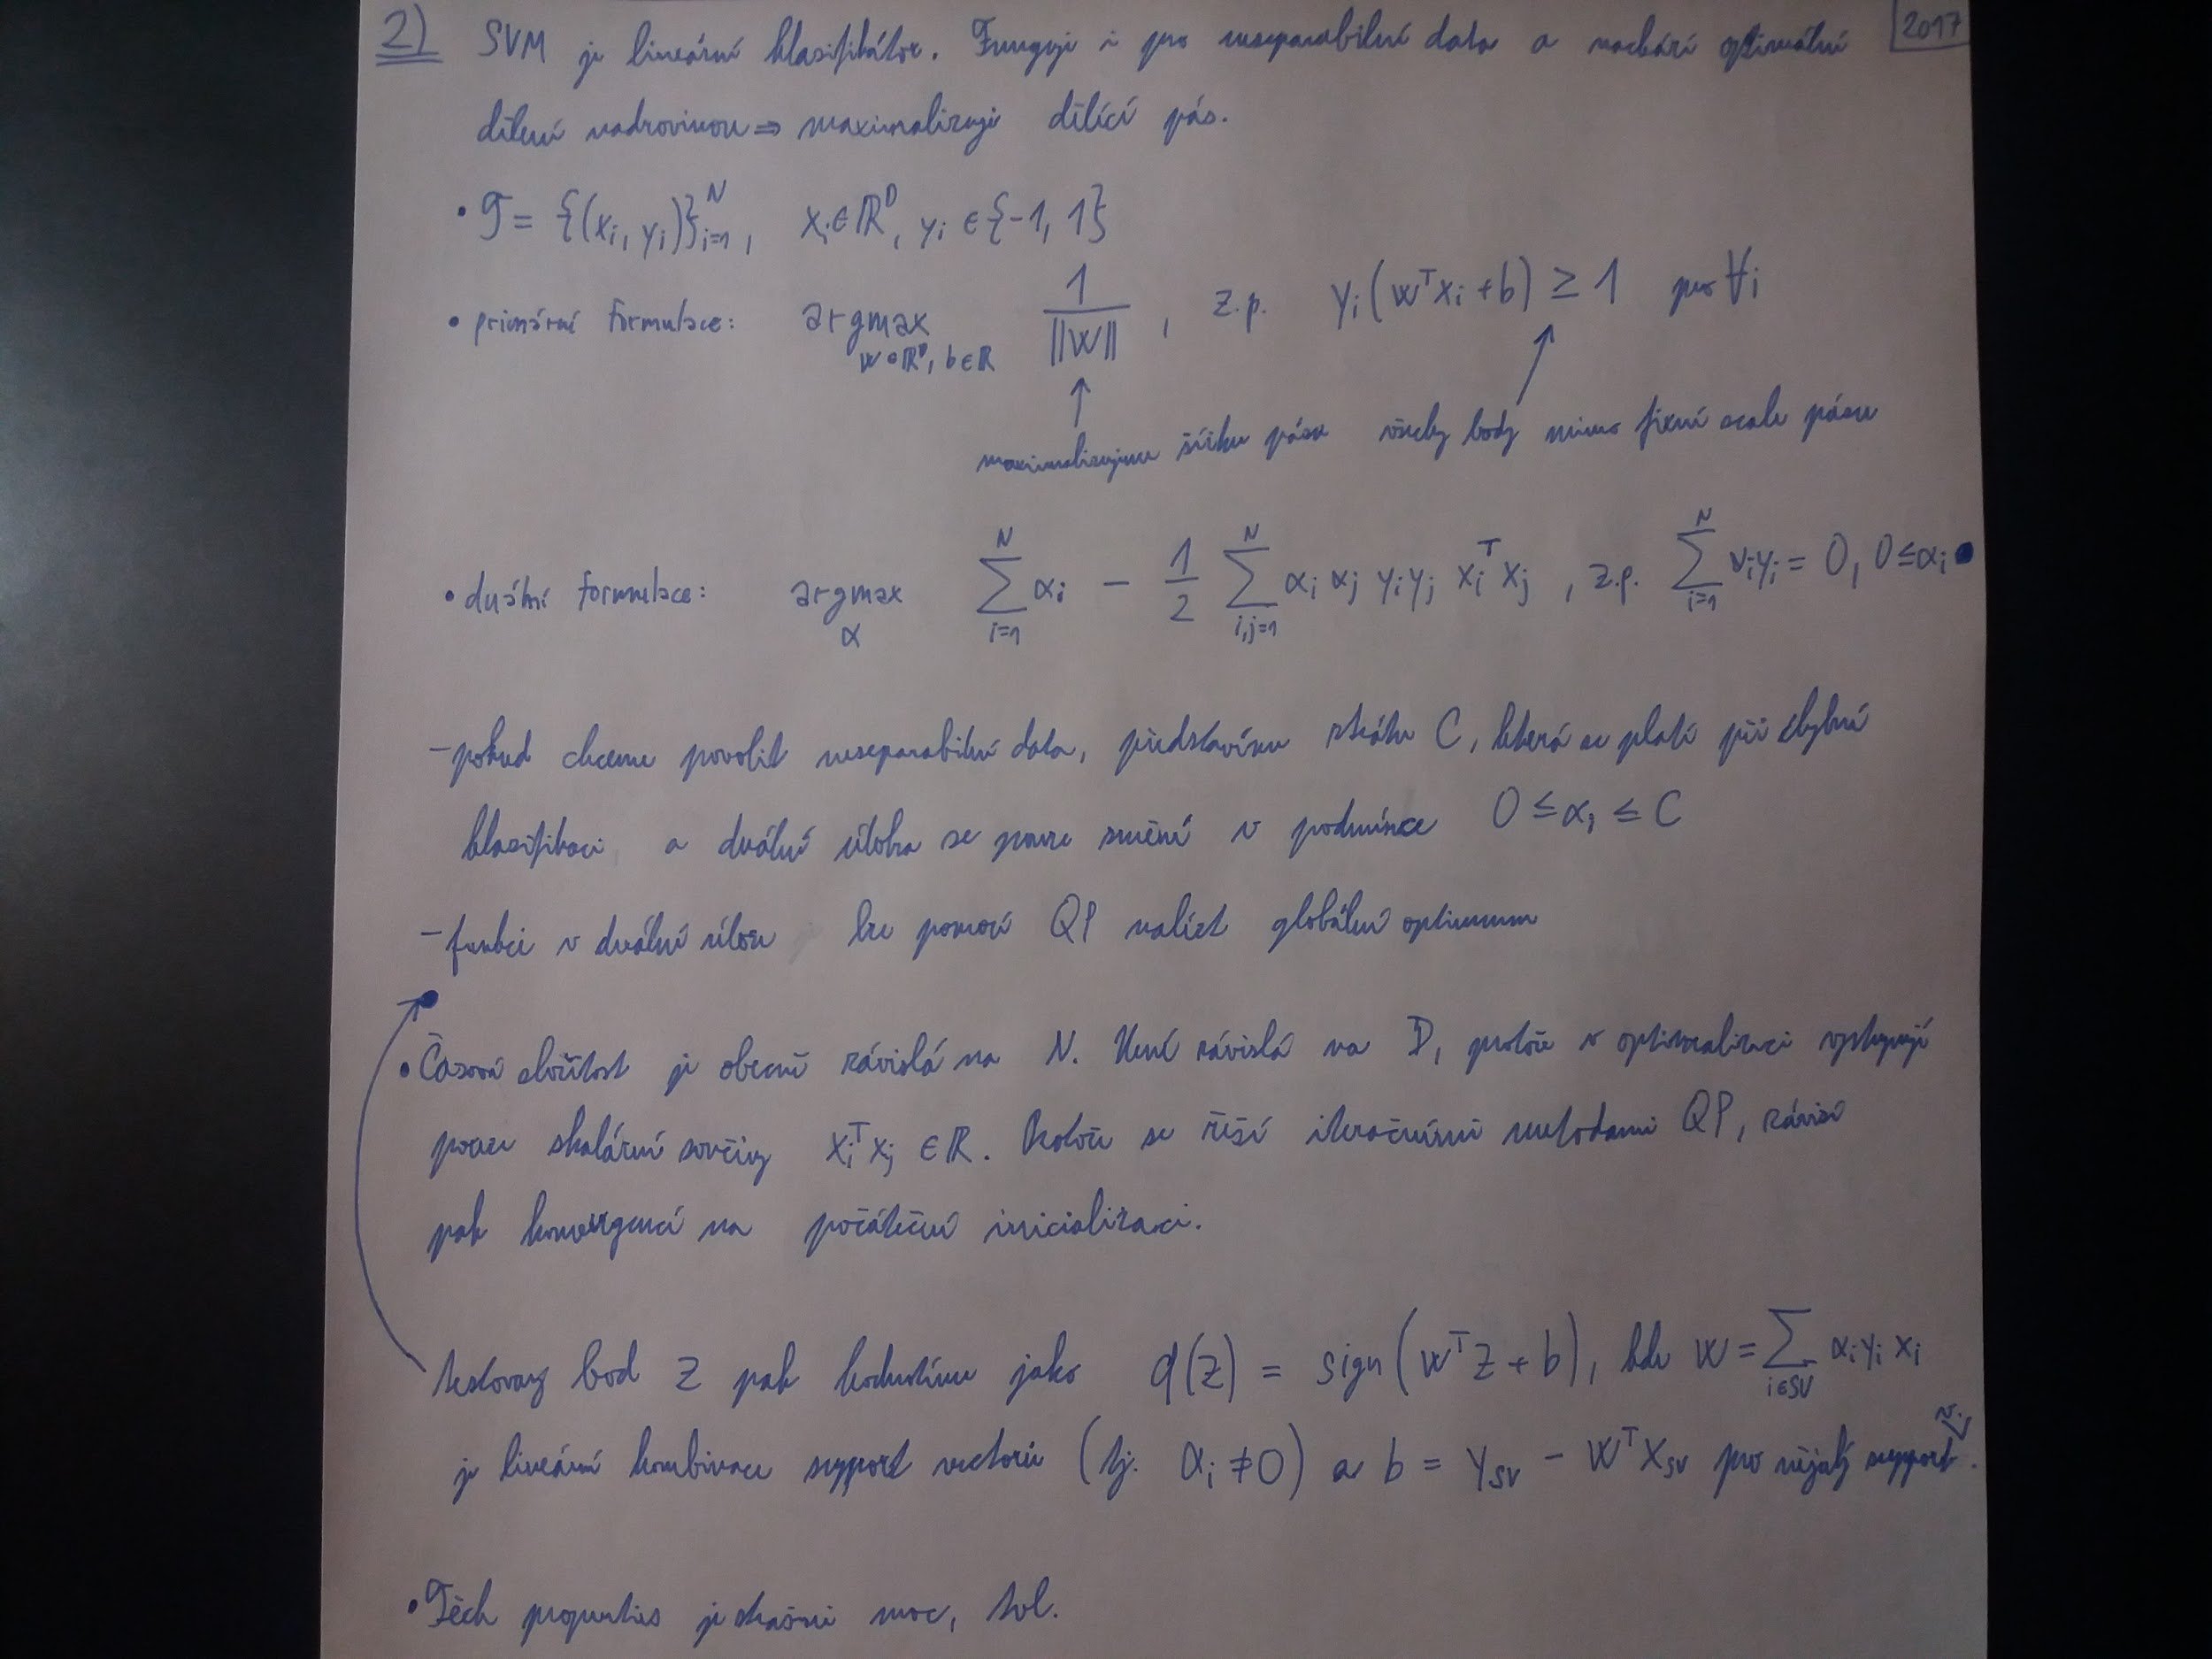 2) SVM je lineární klasifikátor. Funguje i pro neseparabilní data a nachází optimální 2017
dělení nadrovinou ⇒ maximalizuje dělící pás.
• T = {(xᵢ, yᵢ)}ᵢ₌₁ᴺ, xᵢ ∈ ℝᴰ, yᵢ ∈ {-1, 1}
• primární formulace: argmax_{w∈ℝᴰ, b∈ℝ} 1/||w||, z.p. yᵢ(wᵀxᵢ + b) ≥ 1 pro ∀i
maximalizujeme šířku pásu všechny body mimo fixní scale pásu
• duální formulace: argmax_α Σ_{i=1}^N αᵢ − 1/2 Σ_{i,j=1}^N αᵢ αⱼ yᵢ yⱼ xᵢᵀxⱼ, z.p. Σ_{i=1}^N νᵢyᵢ = 0, 0 ≤ αᵢ
– pokud chceme povolit neseparabilní data, představíme ztrátu C, která se platí při chybné
klasifikaci a duální úloha se pouze změní v podmínce 0 ≤ αᵢ ≤ C
– funkci v duální úloze lze pomocí QP nalézt globální optimum
• Časová složitost je obecně závislá na N. Není závislá na D, protože v optimalizaci vystupují
pouze skalární součiny xᵢᵀxⱼ ∈ ℝ. Protože se řeší iteračními metodami QP, závisí
pak konvergencí na počáteční inicializaci.
testovaný bod z pak hodnotíme jako q(z) = sign(wᵀz + b), kde w = Σ_{i∈SV} αᵢ yᵢ xᵢ
je lineární kombinace support vectorů (tj. αᵢ ≠ 0) a b = y_SV − wᵀx_SV pro nějaký support v.
• Těch properties je strašně moc, lol.